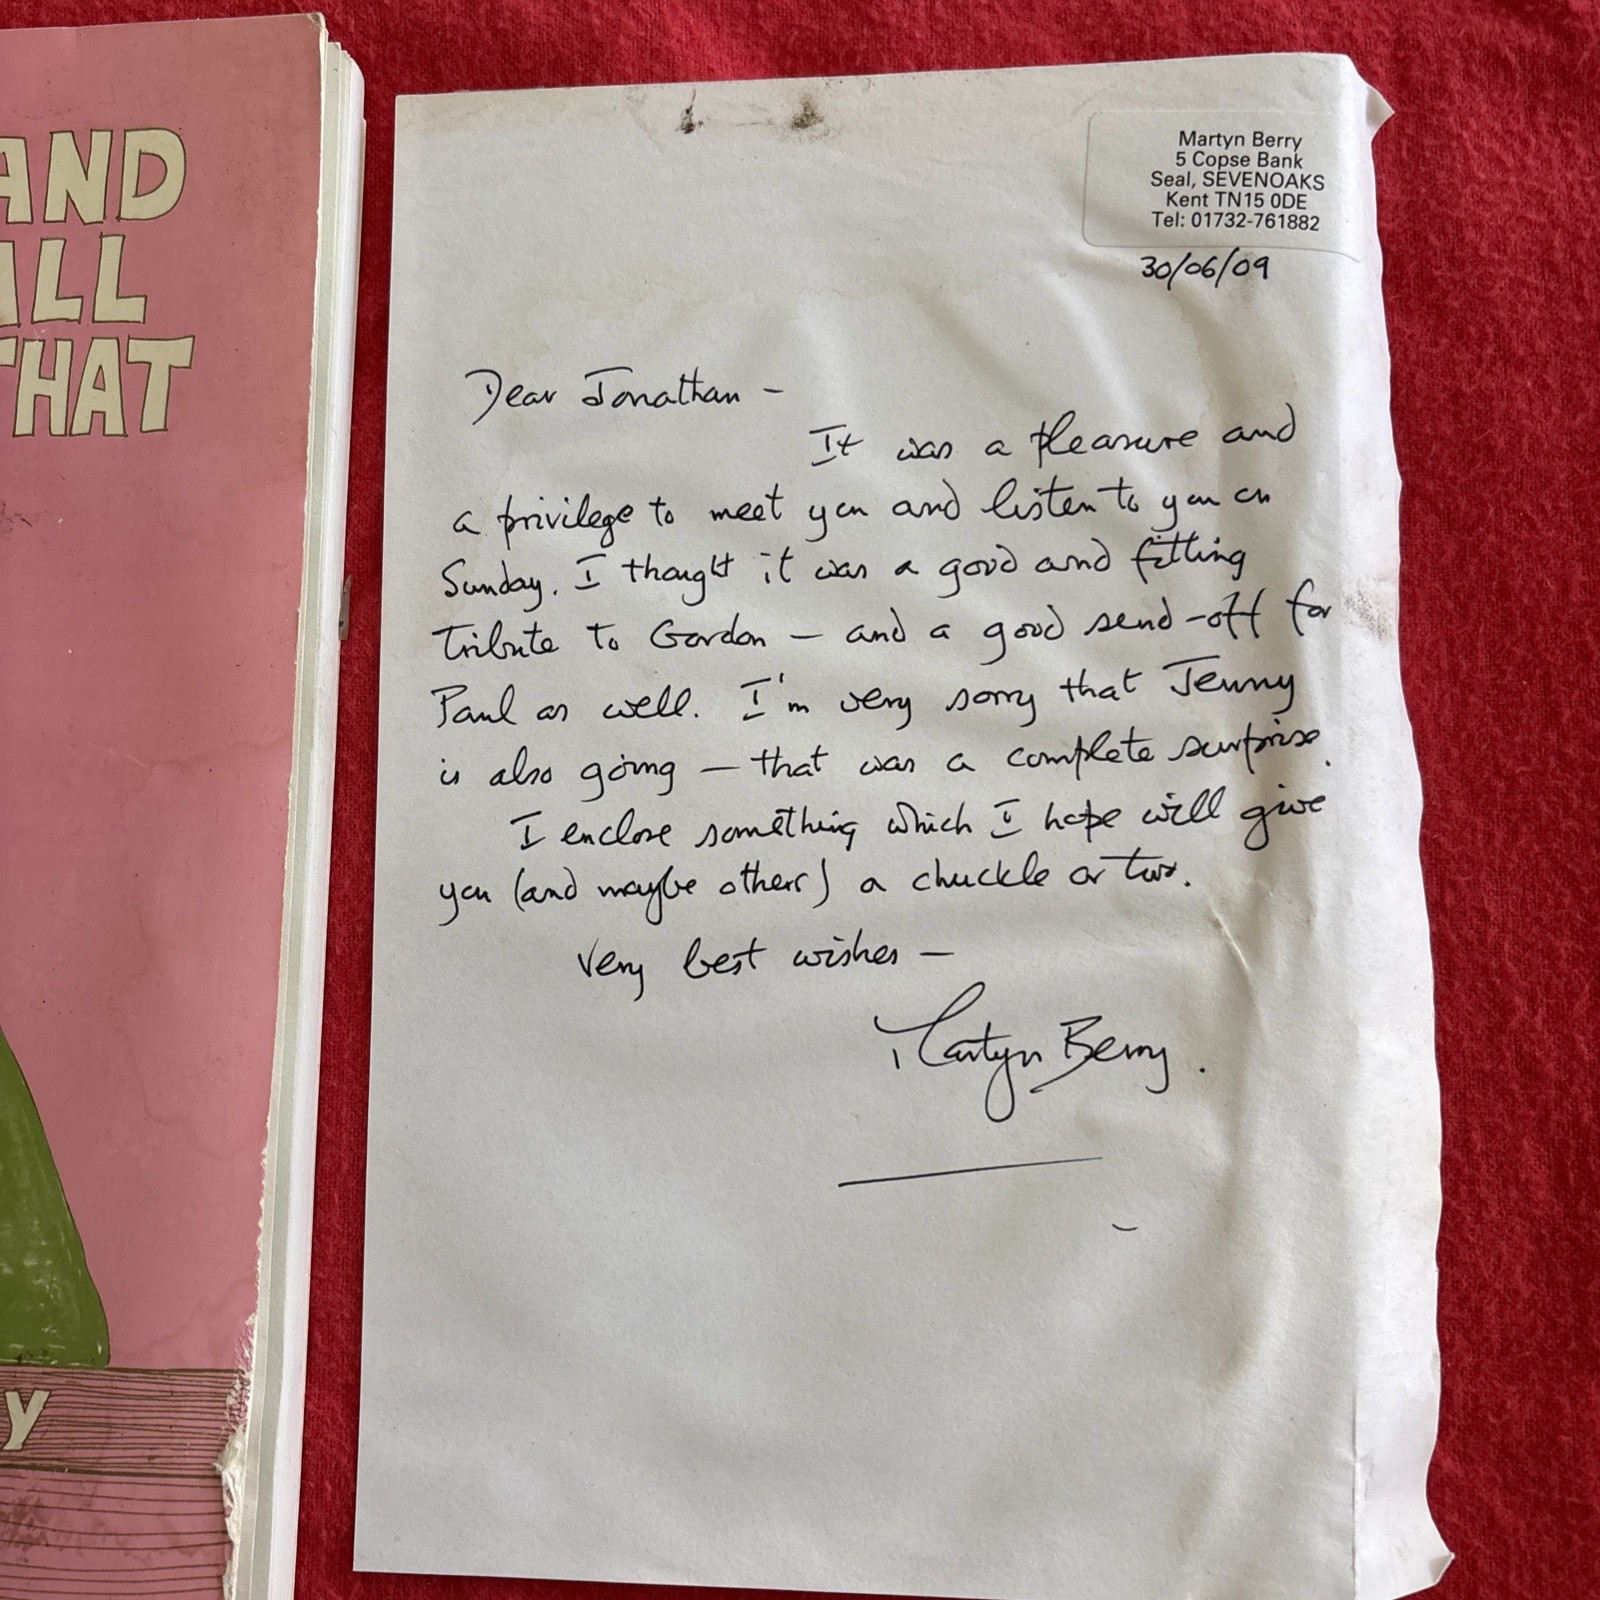 AND
ALL
THAT
y
Martyn Berry
5 Copse Bank
Seal, SEVENOAKS
Kent TN15 0DE
Tel: 01732-761882
30/06/09
Dear Jonathan –
It was a pleasure and
a privilege to meet you and listen to you on
Sunday. I thought it was a good and fitting
tribute to Gordon – and a good send-off for
Paul as well. I'm very sorry that Jenny
is also going – that was a complete surprise.
I enclose something which I hope will give
you (and maybe others) a chuckle or two.
Very best wishes –
Martyn Berry.